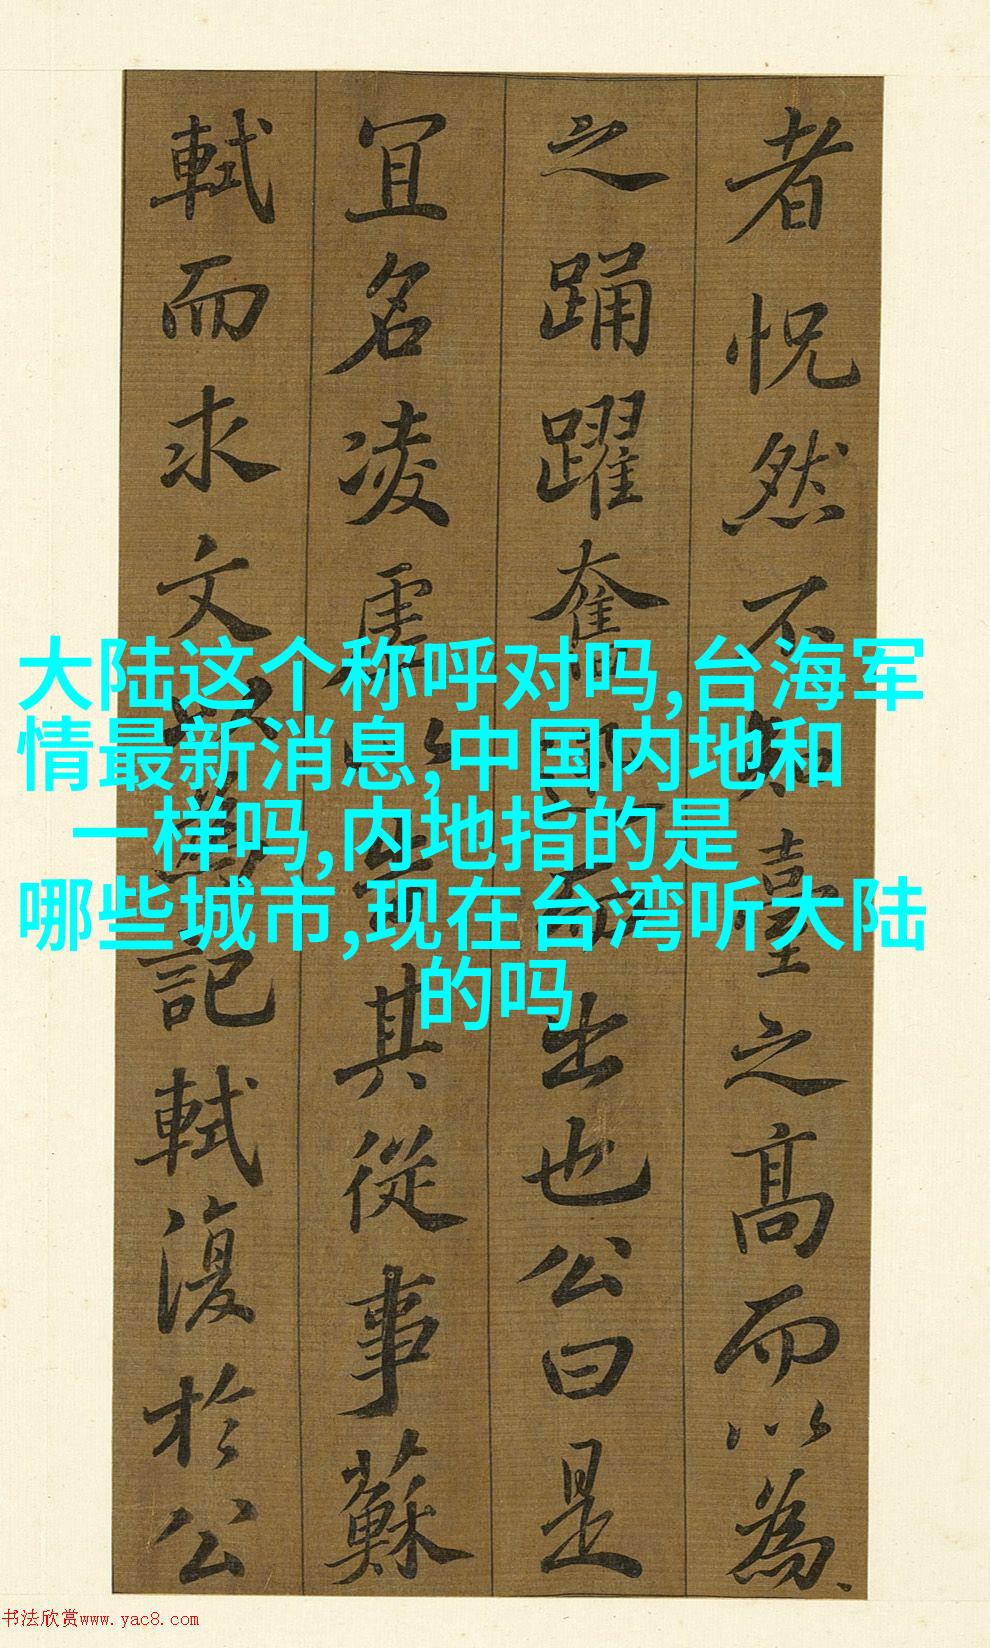 者怳然不知臺之髙而以為
之踊躍奮迅而出也公曰是
宜名凌虛以告其從事蘇
軾而求文以為記軾復於公
大陆这个称呼对吗,台海军
情最新消息,中国内地和
一样吗,内地指的是
哪些城市,现在台湾听大陆
的吗
书法欣赏www.yac8.com